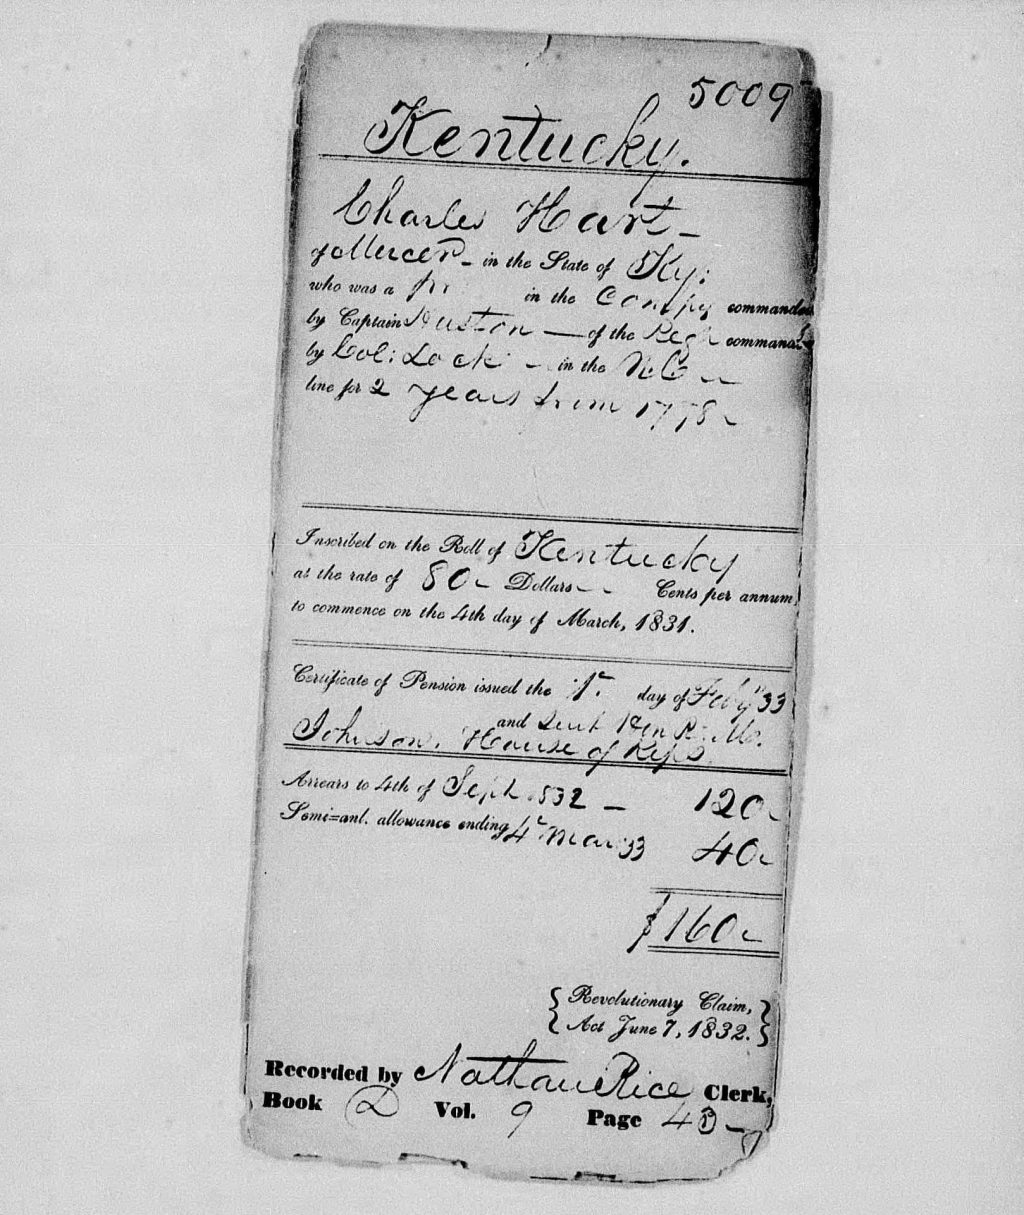 5009
Kentucky.
Charles Hart
of Mercer in the State of Ky:
who was a in the Compy commanded
by Captain Huston of the Regt commanded
by Col: Lock in the N C
line for 2 years from 1778
Inscribed on the Roll of Kentucky
at the rate of 80 Dollars Cents per annum,
to commence on the 4th day of March, 1831.
Certificate of Pension issued the 1st day of Feby 33
and sent R. M.
Johnson, House of Reps.
Arrears to 4th of Sept 1832 120
Semi=anl. allowance ending 4 Mar 33 40
$160
{Revolutionary Claim,}
{Act June 7, 1832.}
Recorded by Nathan Rice Clerk,
Book D Vol. 9 Page